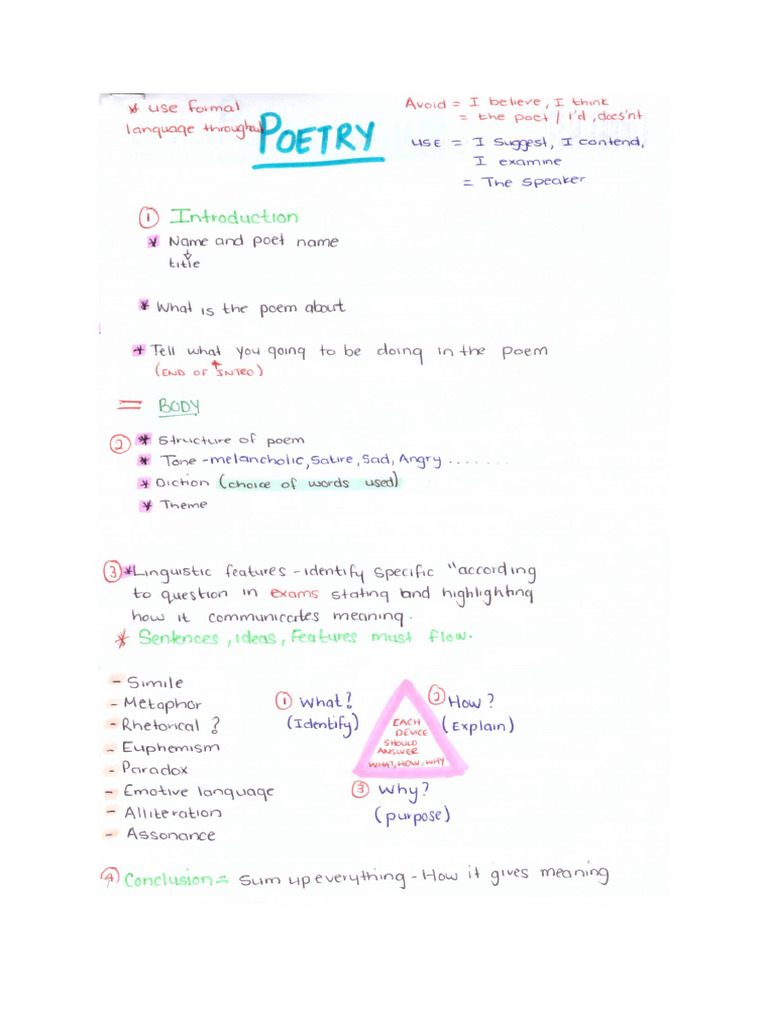 * use formal
language throughout
POETRY
Avoid = I believe, I think
= the poet / I'd, does'nt
USE = I suggest, I contend,
I examine
= The speaker
① Introduction
* Name and poet name
title
* What is the poem about
* Tell what you going to be doing in the poem
(END OF INTRO)
= BODY
② * Structure of poem
* Tone - melancholic, Satire, Sad, Angry ........
* Diction (choice of words used)
* Theme
③ * Linguistic features - identify specific "according
to question in exams stating and highlighting
how it communicates meaning.
* Sentences, ideas, Features must flow.
- Simile
- Metaphor
- Rhetorical ?
- Euphemism
- Paradox
- Emotive language
- Alliteration
- Assonance
① What?
(Identify)
② How?
(Explain)
EACH
DEVICE
SHOULD
ANSWER
WHAT, HOW, WHY
③ Why?
(purpose)
④ Conclusion = sum up everything - How it gives meaning